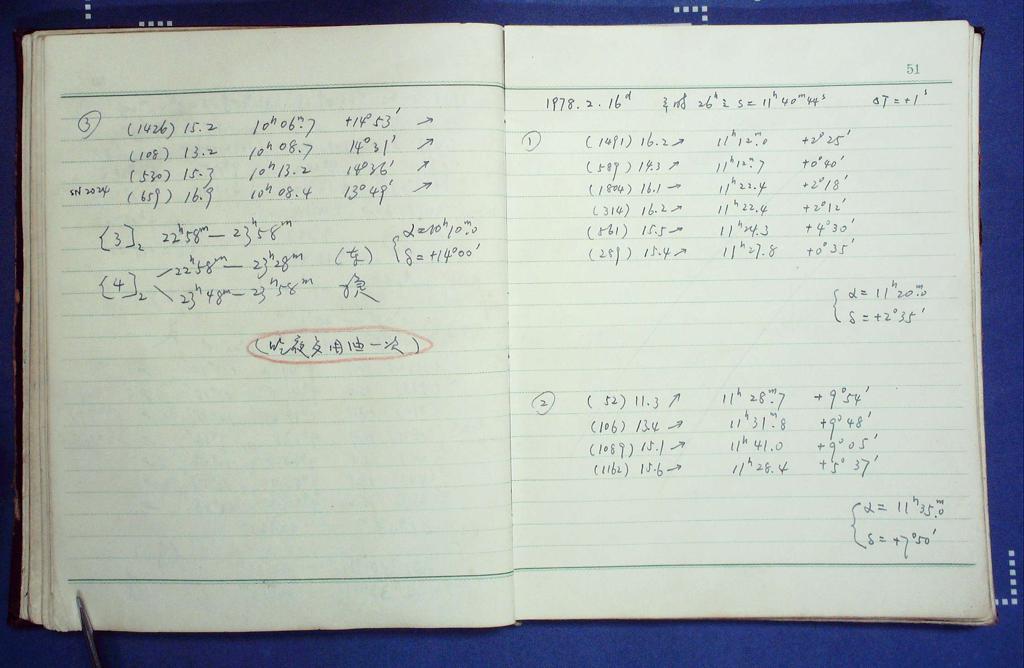 ③ (1426) 15.2 10ʰ 06ᵐ.7 +14° 53′ ↗
(108) 13.2 10ʰ 08.7 14° 31′ ↗
(530) 15.3 10ʰ 13.2 14° 36′ ↗
SN2024 (659) 16.9 10ʰ 08.4 13° 49′ ↗
[3]₂ 22ʰ58ᵐ — 23ʰ58ᵐ
α=10ʰ10ᵐ.0
[4]₂ 22ʰ58ᵐ — 23ʰ28ᵐ
δ=+14°00′
23ʰ48ᵐ — 23ʰ58ᵐ
(昨夜交电池一次)
51
1978.2.16ᵈ 26ʰ S=11ʰ40ᵐ44ˢ ΔT=+1ˢ
① (1491) 16.2→ 11ʰ12ᵐ.0 +2°25′
(589) 14.3→ 11ʰ12ᵐ.7 +0°40′
(1804) 16.1→ 11ʰ22.4 +2°18′
(314) 16.2→ 11ʰ22.4 +2°12′
(561) 15.5→ 11ʰ24.3 +4°30′
(259) 15.4→ 11ʰ27.8 +0°35′
α=11ʰ20ᵐ.0
δ=+2°35′
② (52) 11.3↗ 11ʰ28ᵐ.7 +9°54′
(106) 13.4→ 11ʰ31ᵐ.8 +9°48′
(1089) 15.1→ 11ʰ41.0 +9°05′
(1162) 15.6→ 11ʰ28.4 +5°37′
α=11ʰ35ᵐ.0
δ=+7°50′